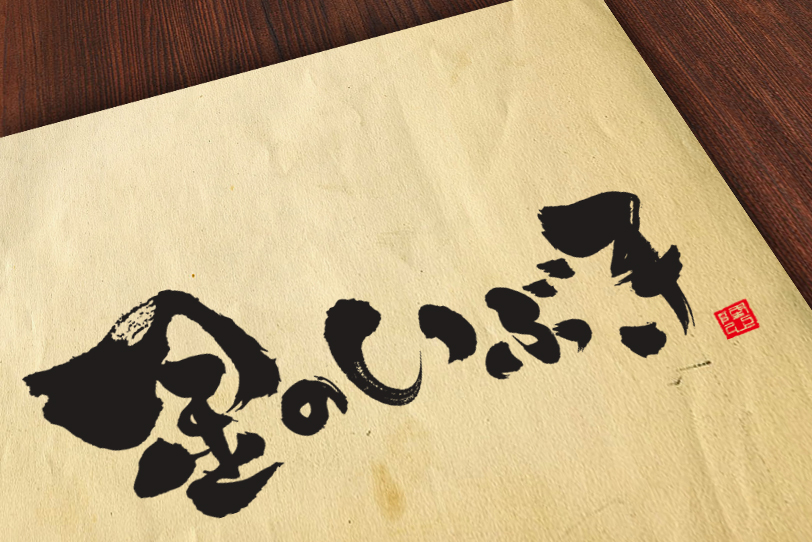 金のいぶき